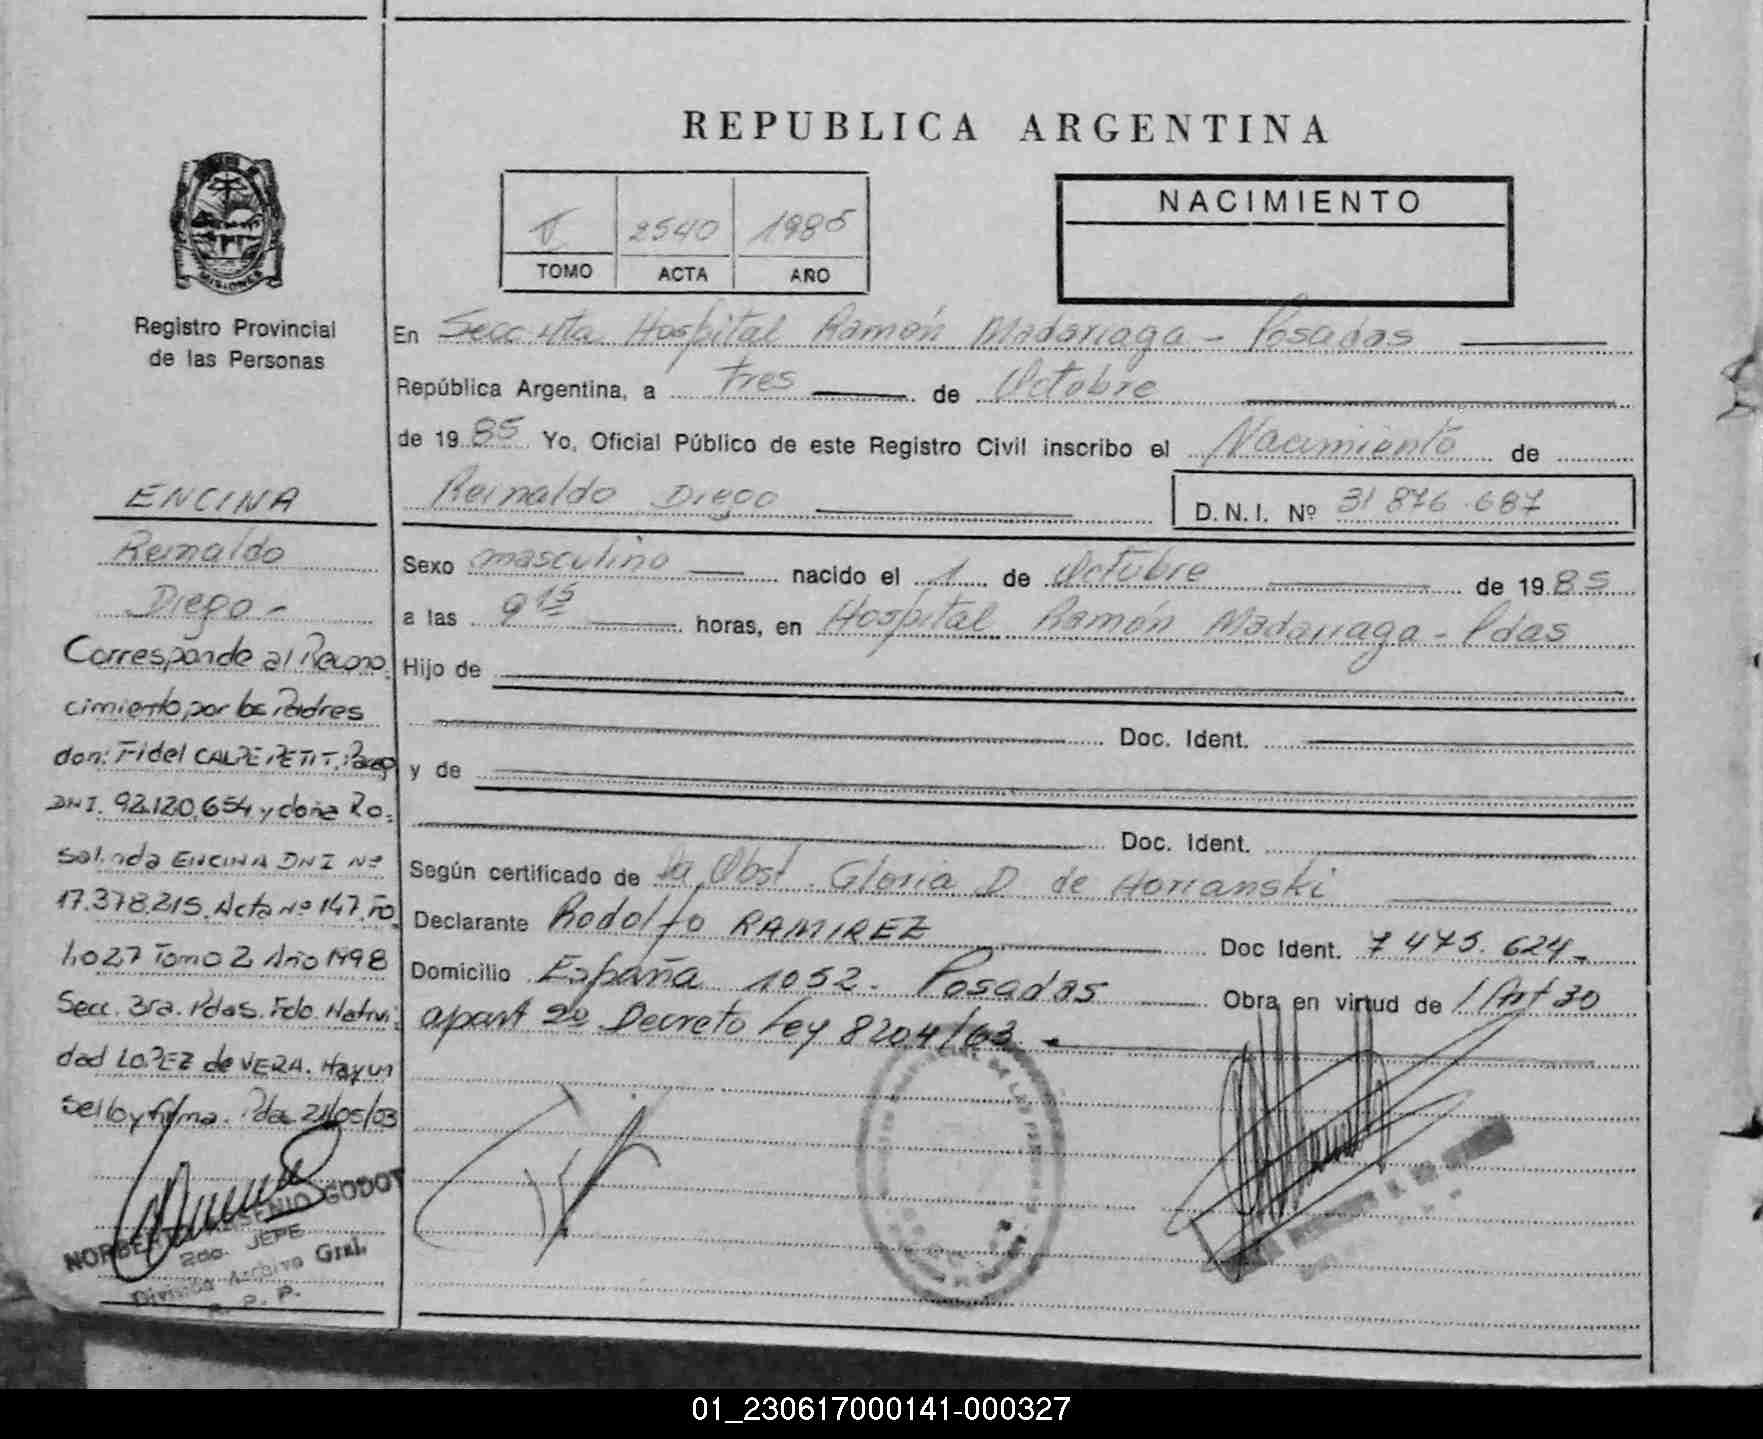 REPUBLICA ARGENTINA
MISIONES
Registro Provincial
de las Personas
2540 1985
TOMO ACTA AÑO
NACIMIENTO
En Secc 4ta Hospital Ramón Madariaga - Posadas
República Argentina, a tres de Octubre
de 1985 Yo, Oficial Público de este Registro Civil inscribo el Nacimiento de
Reinaldo Diego
D.N.I. Nº 31 876.687
Sexo masculino nacido el 1 de Octubre de 1985
a las 9 15 horas, en Hospital Ramón Madariaga - Pdas
Hijo de
Doc. Ident.
y de
Doc. Ident.
Según certificado de la Obst. Gloria D de Horianski
Declarante Rodolfo RAMIREZ Doc Ident. 7 475.624-
Domicilio España 1052. Posadas Obra en virtud de / Art 30
apart 2º Decreto Ley 8204/63.
ENCINA
Reinaldo
Diego-
Corresponde al Recono
cimiento por los Padres
don: Fidel CALPE PETIT,
DNI. 92.120.654 y doña Ro-
salinda ENCINA DNI Nº
17.378.215. Acta Nº 147. Fo.
1.027 Tomo 2 Año 1998
Secc. 3ra. Pdas. Fdo. Nativi-
dad LOPEZ de VERA. Hay un
Sello y firma. Pdas 21/05/03
GODOY
2do. JEFE
División Archivo Gral.
R. P. P.
01_230617000141-000327